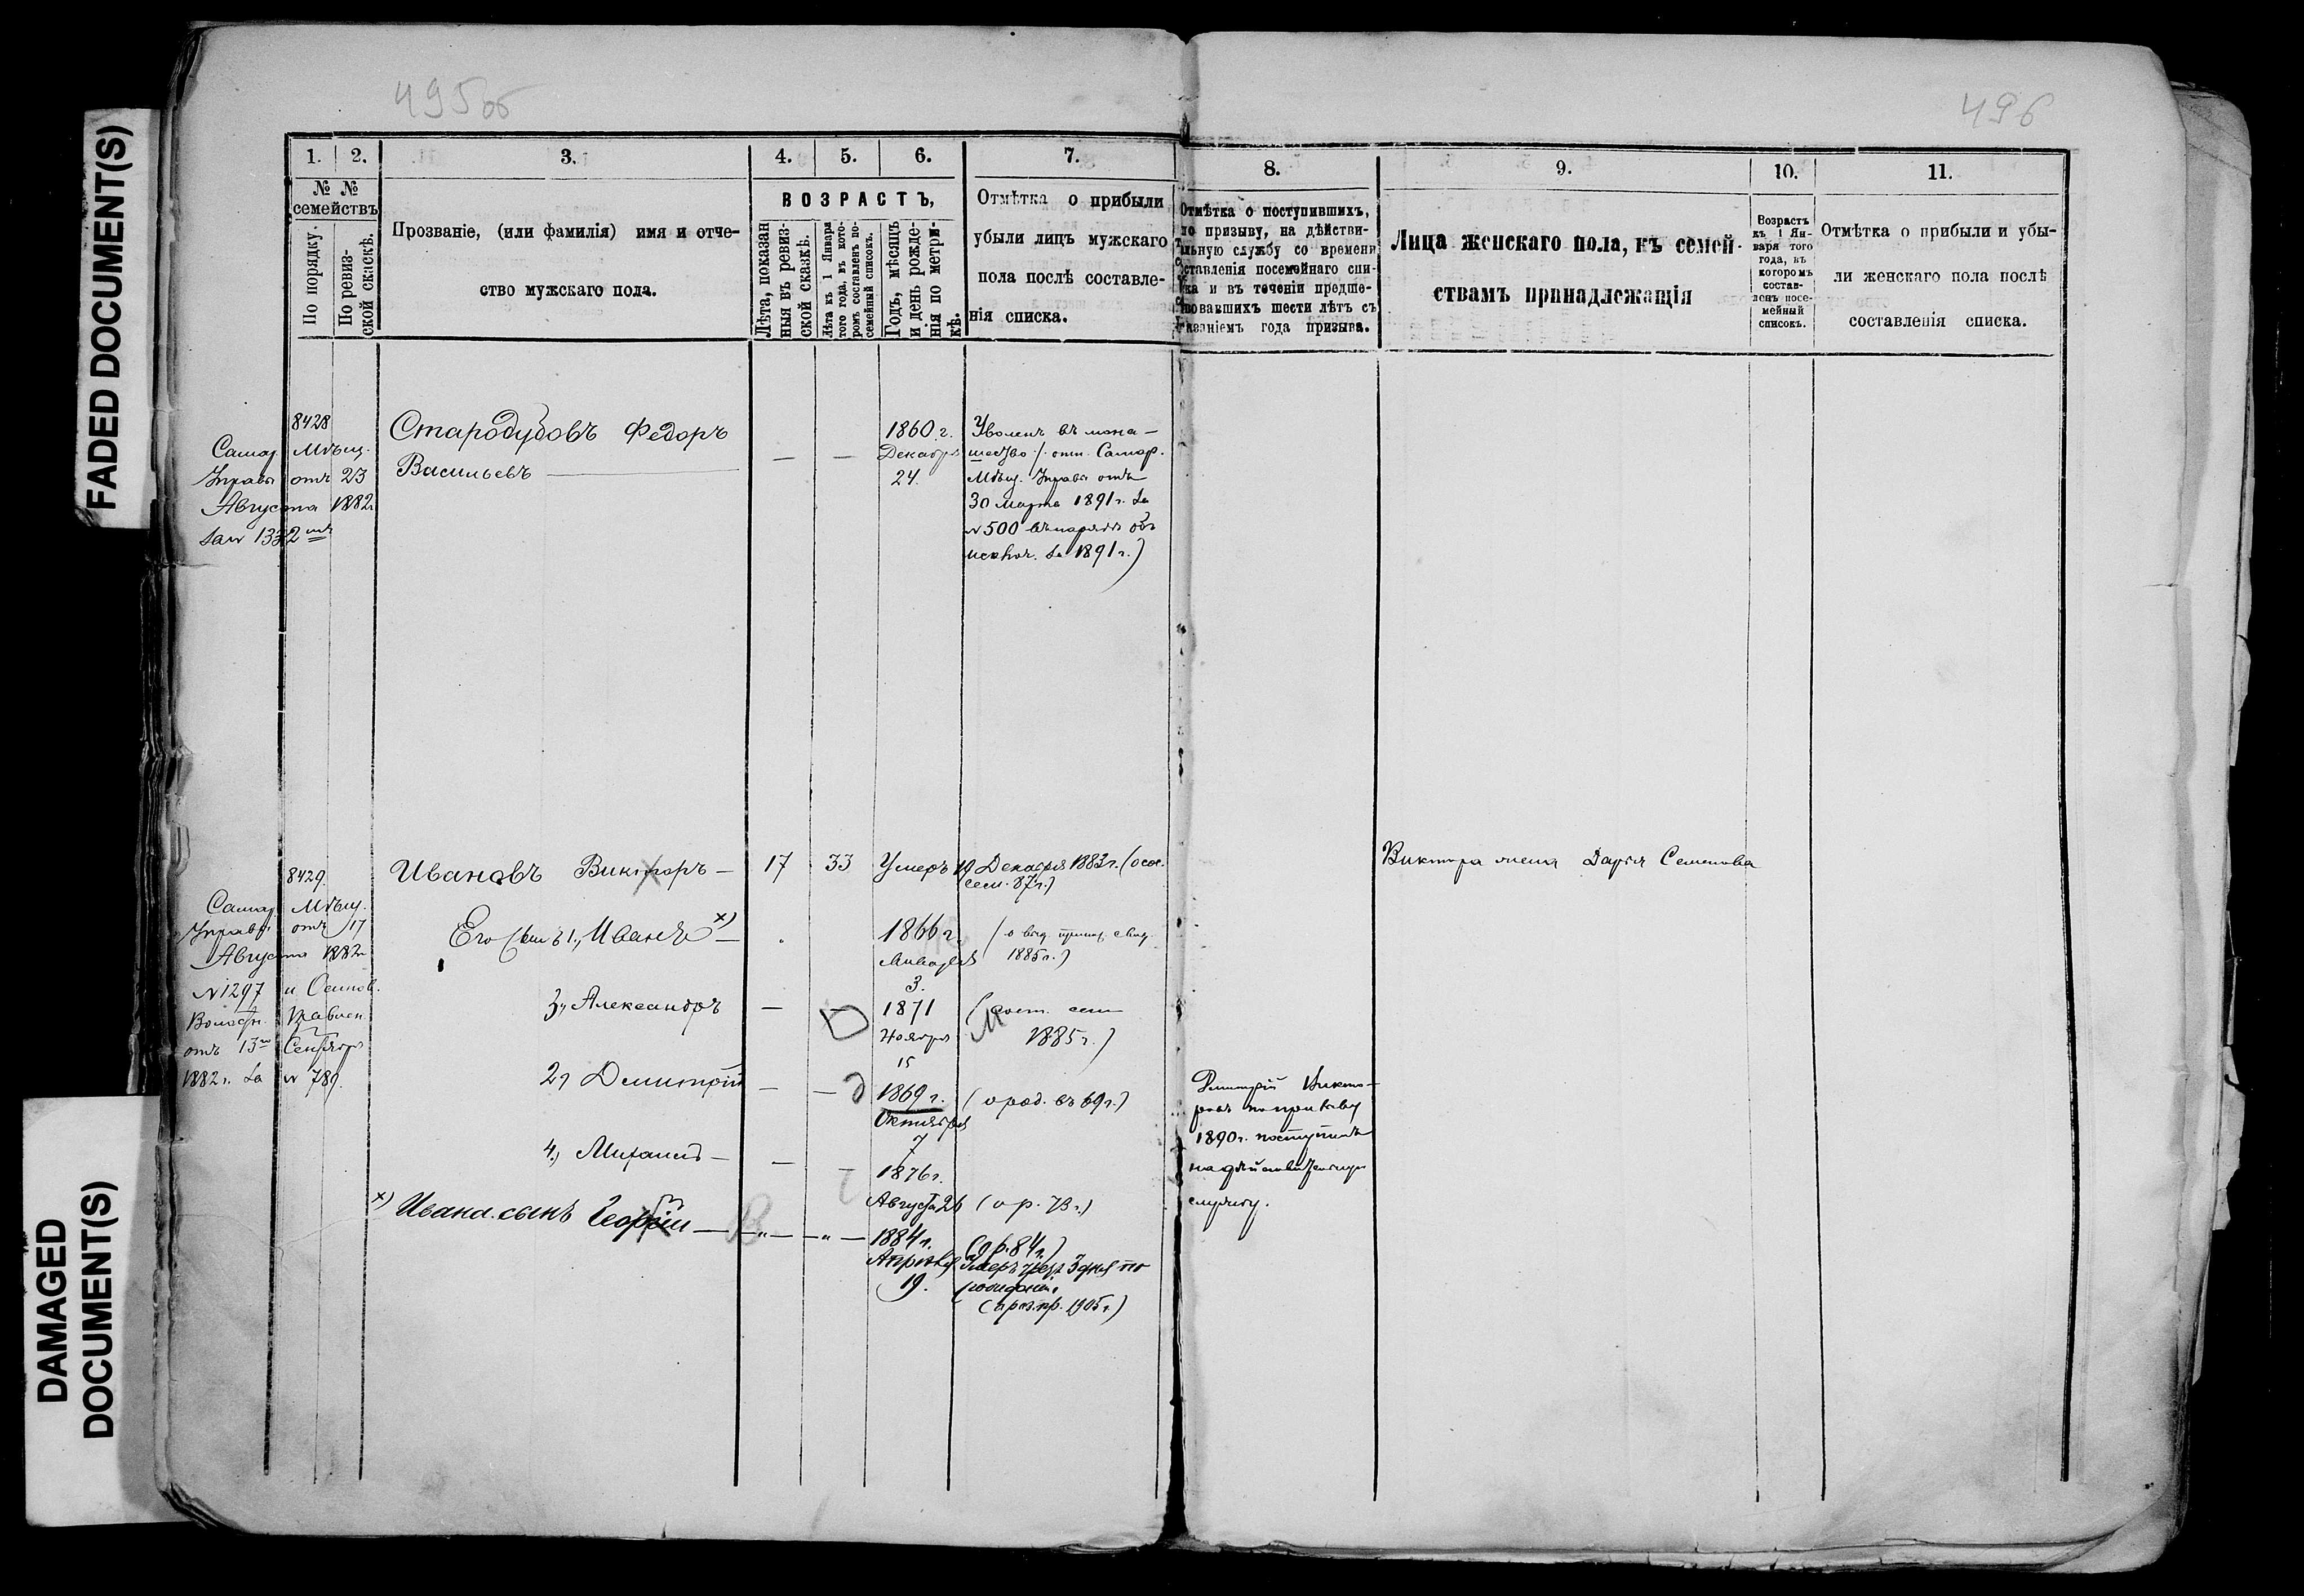 FADED DOCUMENT(S)
DAMAGED
DOCUMENT(S)
495об
496
1.
2.
3.
4.
5.
6.
7.
8.
9.
10.
11.
№ №
семействъ
По порядку.
По ревиз-
ской сказкѣ.
Прозваніе, (или фамилія) имя и отче-
ство мужскаго пола.
ВОЗРАСТЪ,
Лѣта, показан
ныя въ ревиз-
ской сказкѣ.
Лѣта къ 1 Января
того года, въ кото-
ромъ составленъ по-
семейный списокъ.
Годъ, мѣсяцъ
и день рожде-
нія по метри-
кѣ.
Отмѣтка о прибыли
убыли лицъ мужскаго
пола послѣ составле-
нія списка.
Отмѣтка о поступившихъ,
по призыву, на дѣйстви-
льную службу со времени
ставленія посемейнаго спи-
ка и въ теченіи предше-
вовавшихъ шести лѣтъ съ
казаніемъ года призыва.
Лица женскаго пола, къ семей-
ствамъ принадлежащія
Возрастъ
къ 1 Ян-
варя того
года, въ
которомъ
состав-
ленъ посе-
мейный
списокъ.
Отмѣтка о прибыли и убы-
ли женскаго пола послѣ
составленія списка.
8428
Самар. Мѣщ.
Управы отъ 23
Августа 1882
за № 1332
Стародубовъ Федоръ
Васильевъ
— —
1860 г.
Декабря
24.
Уволенъ въ мона-
шество /. отн. Самар.
Мѣщ. Управы отъ
30 Марта 1891 г. за
№ 500 въ нарядѣ объ
исключ. за 1891 г.)
8429.
Самар. Мѣщ.
Управы отъ 17
Августа 1882
№ 1297 и Осинов.
Волостн. Правлен.
отъ 13 Сентября
1882 г. за № 789.
Ивановъ Викторъ —
17
33
Умеръ 19 Декабря 1883 г. (
сем. 87 г.)
Виктора жена Дарья Семенова
Его сынъ 1, Иванъ х) —
1866 г.
Января
3.
(о выд. свид.
1885 г.)
3, Александръ —
1871
Ноября
15
( сем
1885 г.)
2, Димитрій — —
1869 г.
Октября
7
(о род. въ 69 г.)
Димитрій Викто-
ровъ по призыву
1890 г. поступилъ
на дѣйствительную
службу.
4, Михаилъ — — —
1876 г.
Августа 26
(о р. 73 г.)
х) Ивана сынъ Георгій — " — " —
1884 г.
Апрѣля
19.
(о р. 84 г.)
Умеръ чрезъ 3 дня по
рожденіи
( пр. 1905 г.)